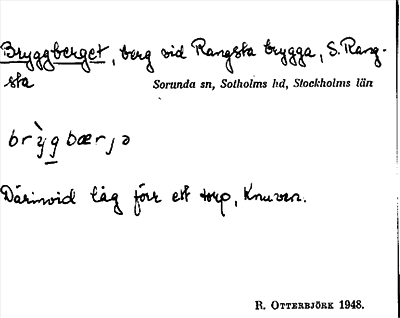 Bryggberget, berg vid Rangsta brygga, S. Rang-
sta
Sorunda sn, Sotholms hd, Stockholms län
brỳg bærjə
Därinvid låg förr ett torp, Knuven.
R. OTTERBJÖRK 1948.